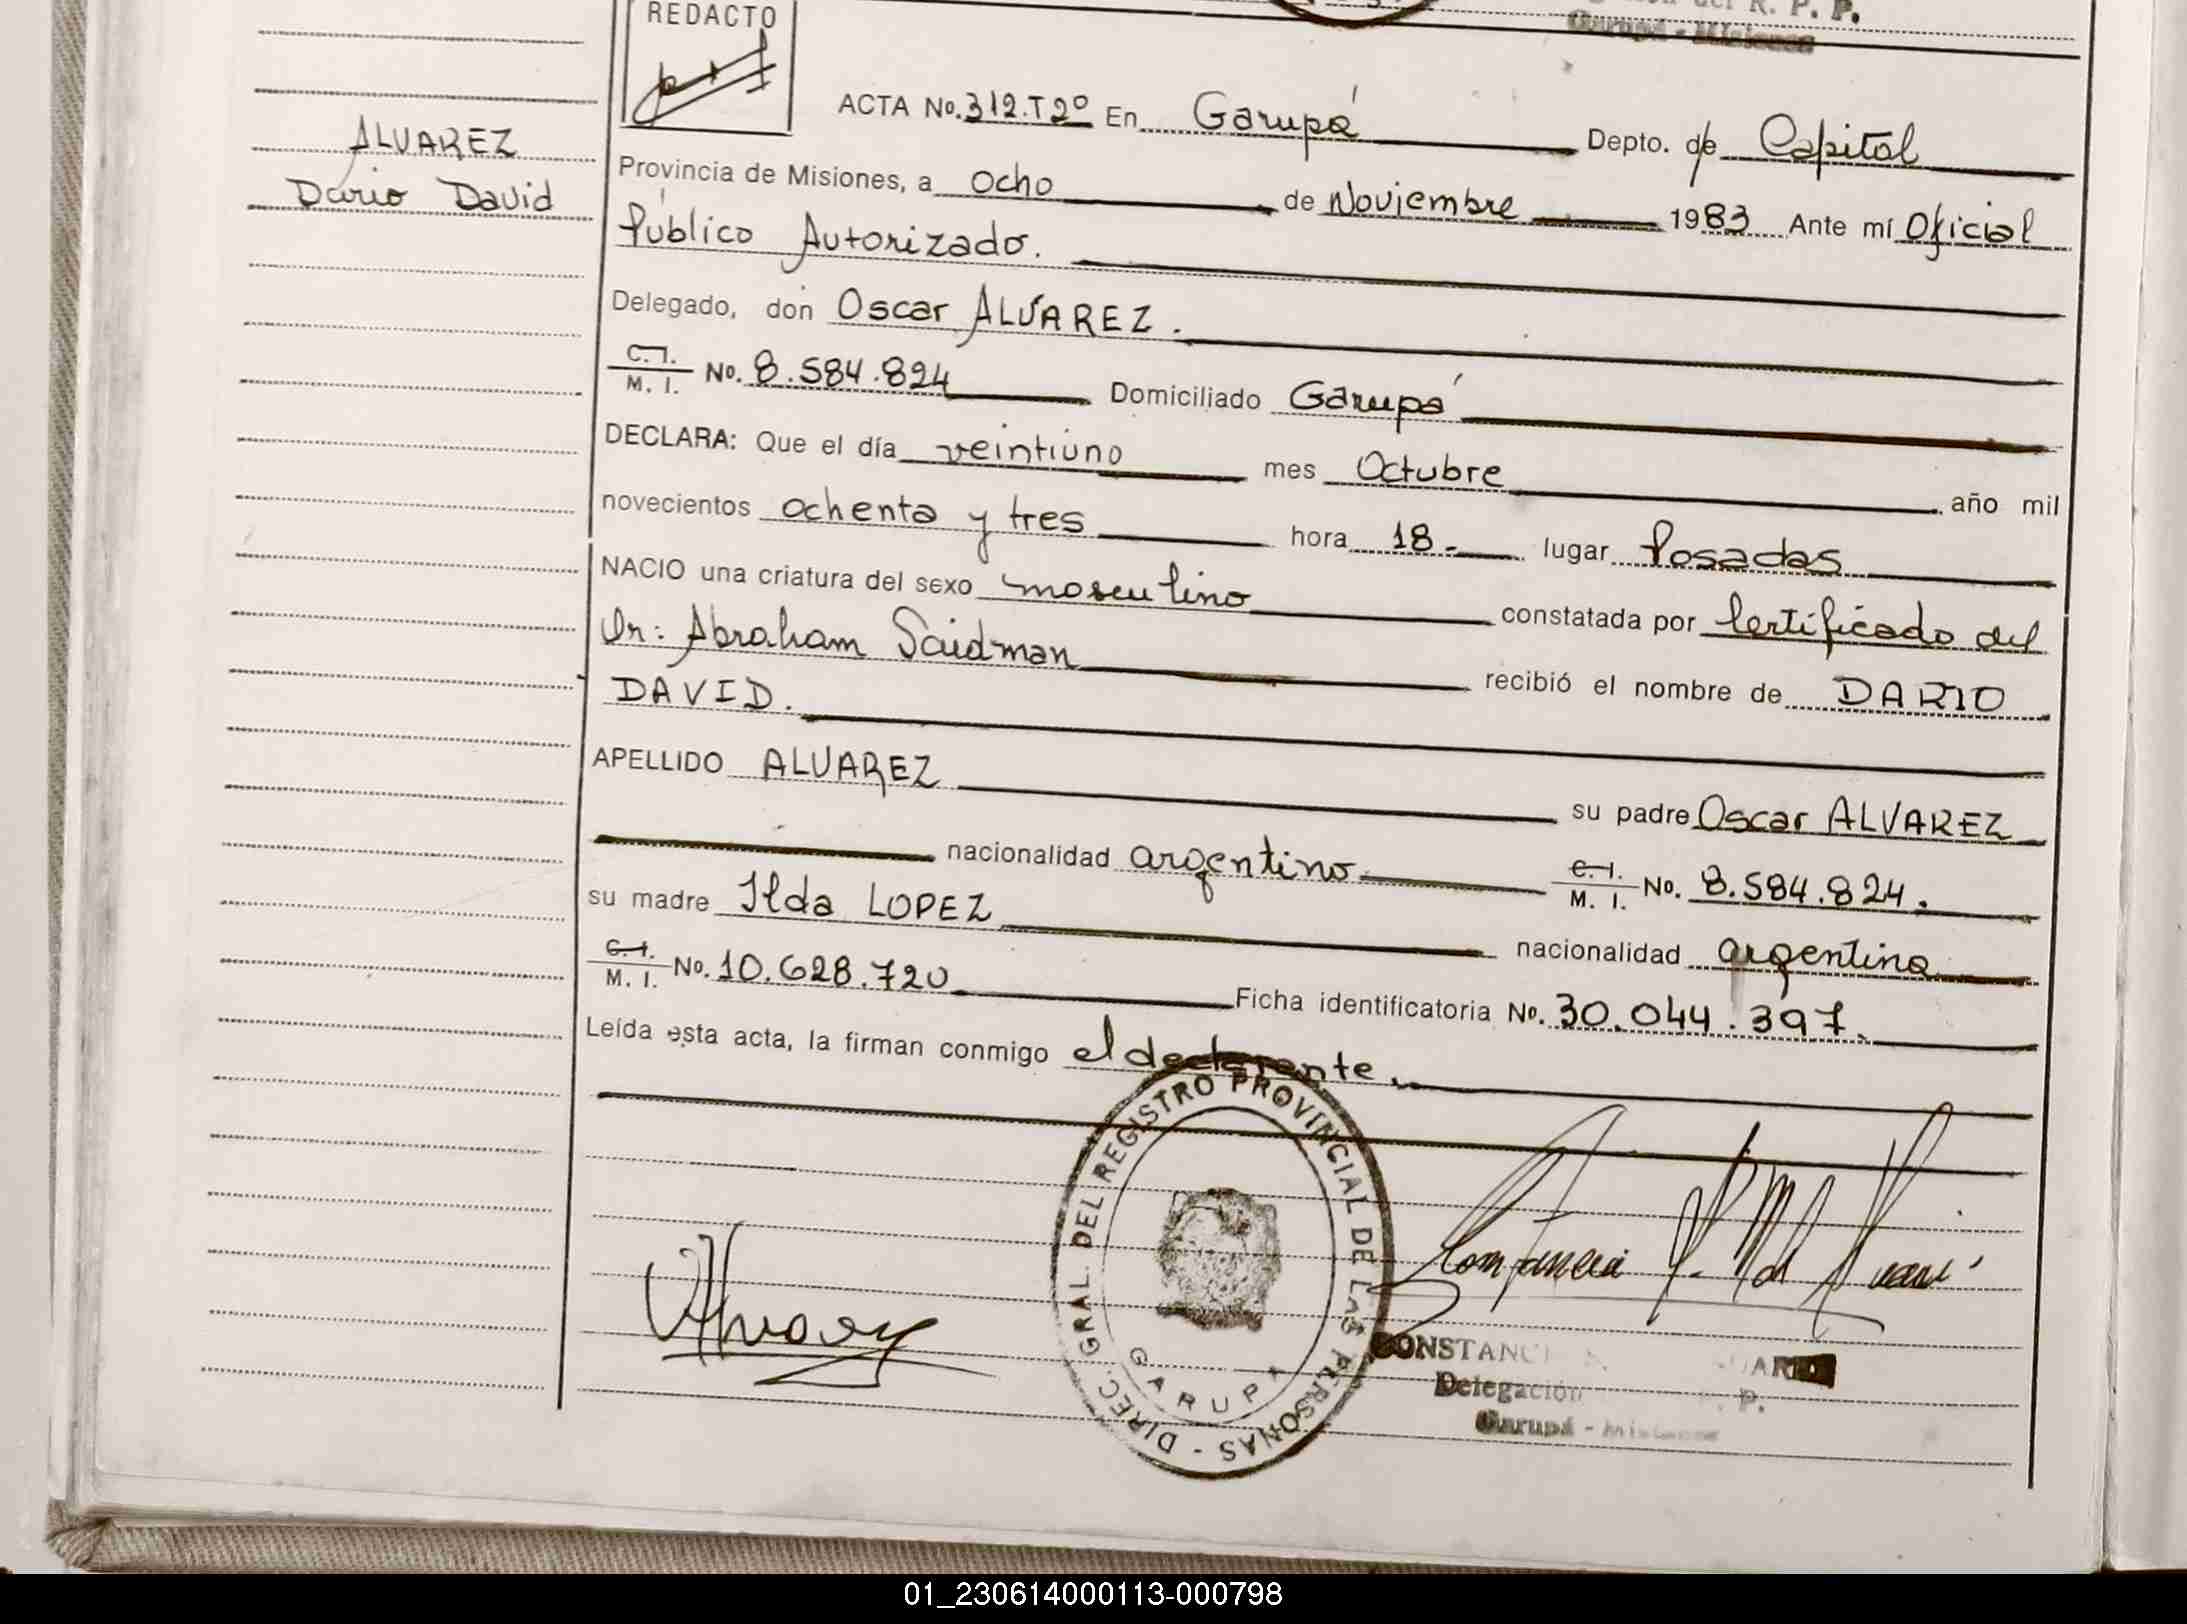 REDACTO
R. P. P.
Garupá - Misiones
ALVAREZ
Dario David
ACTA No. 312.T2º En Garupá Depto. de Capital
Provincia de Misiones, a ocho de Noviembre 1983 Ante mí Oficial
Público Autorizado.
Delegado, don Oscar ALVAREZ.
C. I.
M. I. No. 8.584.824 Domiciliado Garupá
DECLARA: Que el día veintiuno mes Octubre año mil
novecientos ochenta y tres hora 18.- lugar Posadas
NACIO una criatura del sexo masculino constatada por Certificado del
Dr: Abraham Saidman recibió el nombre de DARIO
DAVID.
APELLIDO ALVAREZ su padre Oscar ALVAREZ
nacionalidad argentino C. I.
M. I. No. 8.584.824.
su madre Ilda LOPEZ nacionalidad argentina
C. I.
M. I. No. 10.628.720 Ficha identificatoria No. 30.044.397.
Leída esta acta, la firman conmigo el declarante.
DIREC. GRAL. DEL REGISTRO PROVINCIAL DE LAS PERSONAS -
GARUPA
Alvarez
Delegación P.
Garupá - Misiones
01_230614000113-000798